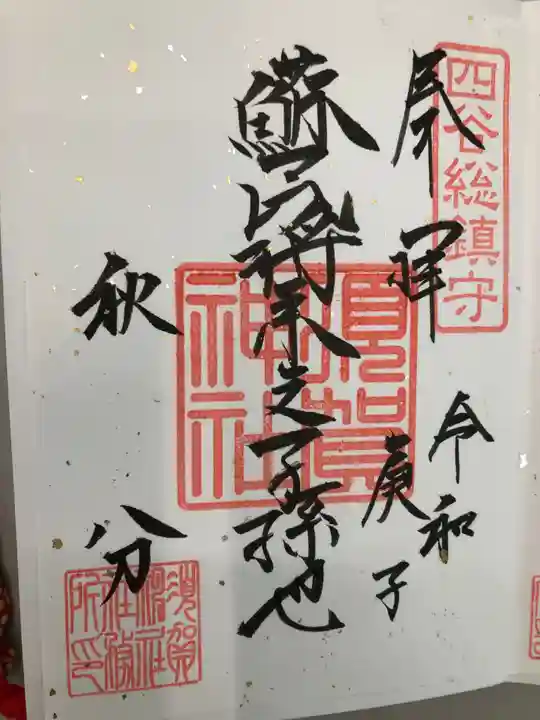 四谷総鎮守
昇拝
令和
庚子
蘇民将来之子孫也
須賀神社
秋分
須賀神社社務所之印